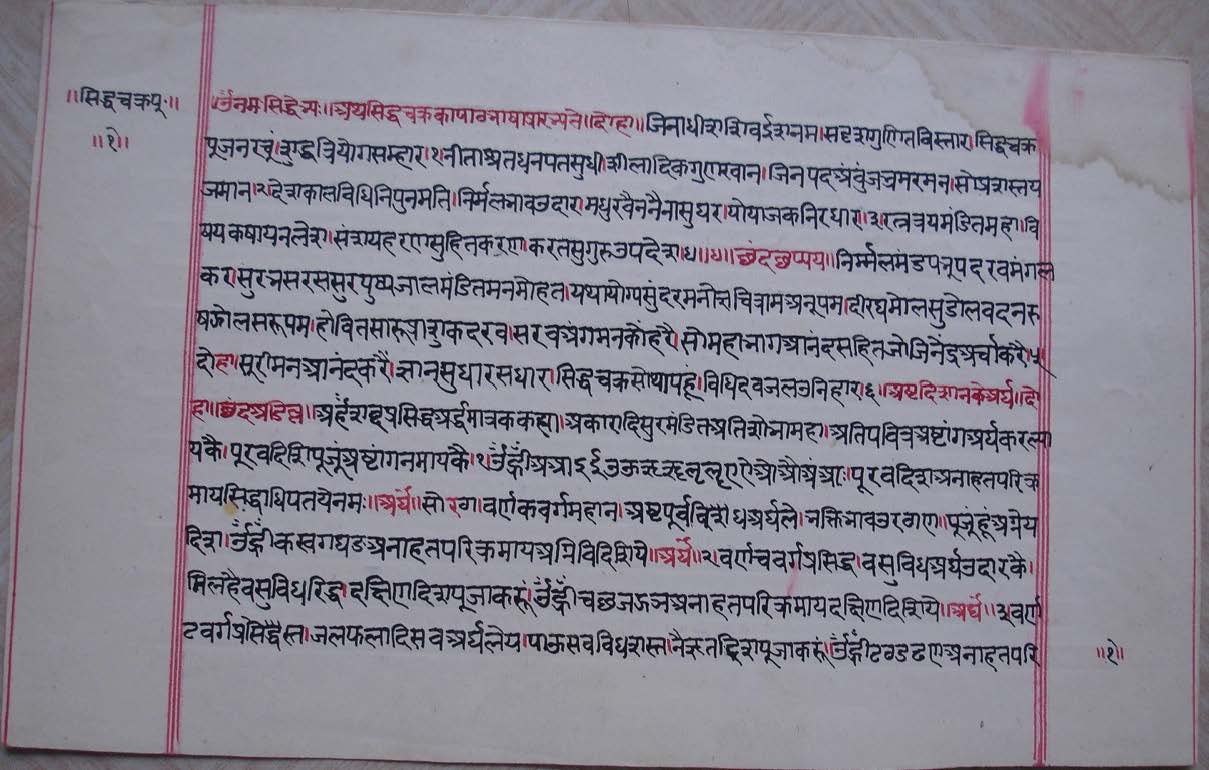 ॥सिद्धचक्रपू॰॥
॥१॥
॥ॐनमःसिद्धेभ्यः॥अथसिद्धचक्रकापाठभाषाप्रारभ्यते॥दोहा॥जिनाधीशशिवईशनम।सहशगुणितविस्तार।सिद्धचक्र
पूजनरचूं।शुद्धत्रियोगसम्हार।१नीताश्रतधनपतसुधी।शीलादिकगुणखान।जिनपदअंबुजभ्रमरमन।सोप्रशस्तय
जमान।२देशकालविधिनिपुनमति।निर्मलभावउदार।मधुरवैननैनासुघर।योयाजकनिरधार।३रत्नत्रयमंडितमहा।वि
षयकषायनलेश।संशयहरणसुहितकरण।करतसुगुरुउपदेश।४॥छंदछप्पय॥निर्म्मलमंडपभूपदरवमंगल
कर।सुरभसरससुरपुष्पजालमंडितमनमोहत।यथायोग्यसुंदरमनोज्ञचित्रामअनूपम।दीरघमोलसुडोलवदनरु
षझोलसरूपम।होवितसारूप्राशुकदरव।सरवअंगमनकोंहरै।सोमहाभागआनंदसहितजोजिनेंद्रअर्चाकरै।५
दोहा।सुरीमनआनंदकरै।ज्ञानसुधारसधार।सिद्धचक्रसोथापहूं।विधिदवजलउनिहार।६॥अष्टदिशानकेअर्घ॥दो
हा॥छंदअडिल्ल॥अर्हंशब्दप्रसिद्धअर्द्धमात्रककह्या।अकारादिसुरमंडितअतिशोभामहा।अतिपवित्रअष्टांगअर्घकरल्या
यकै।पूरवदिशिपूजूंअष्टांगनमायकै।१ॐह्रींअआइईउऊऋॠऌॡएऐओऔअंअः।पूरवदिशअनाहतपरिक्र
मायसिद्धाधिपतयेनमः॥अर्घ॥सोरठा।वर्णकवर्गमहान।अष्टपूर्वविधअर्घले।भक्तिभावउरठाण।पूजूंहूंअग्नेय
दिश।ॐह्रींकखगघङअनाहतपरिक्रमायअग्निविदिशिये॥अर्घ॥२वर्णचवर्गप्रसिद्ध।वसुविधअर्घउदारकै।
मिलहैवसुविधरिद्ध।दक्षिणदिशपूजाकरूं।ॐह्रींचछजझञअनाहतपरिक्रमायदक्षिणदिशिये॥अर्घ॥३वर्ण
टवर्गप्रसिद्धस्त।जलफलादिसवअर्घलेय।पाऊसवविधशस्त।नैऋतद्दिशपूजाकरूं।ॐह्रींटठडढणअनाहतपरि
॥१॥